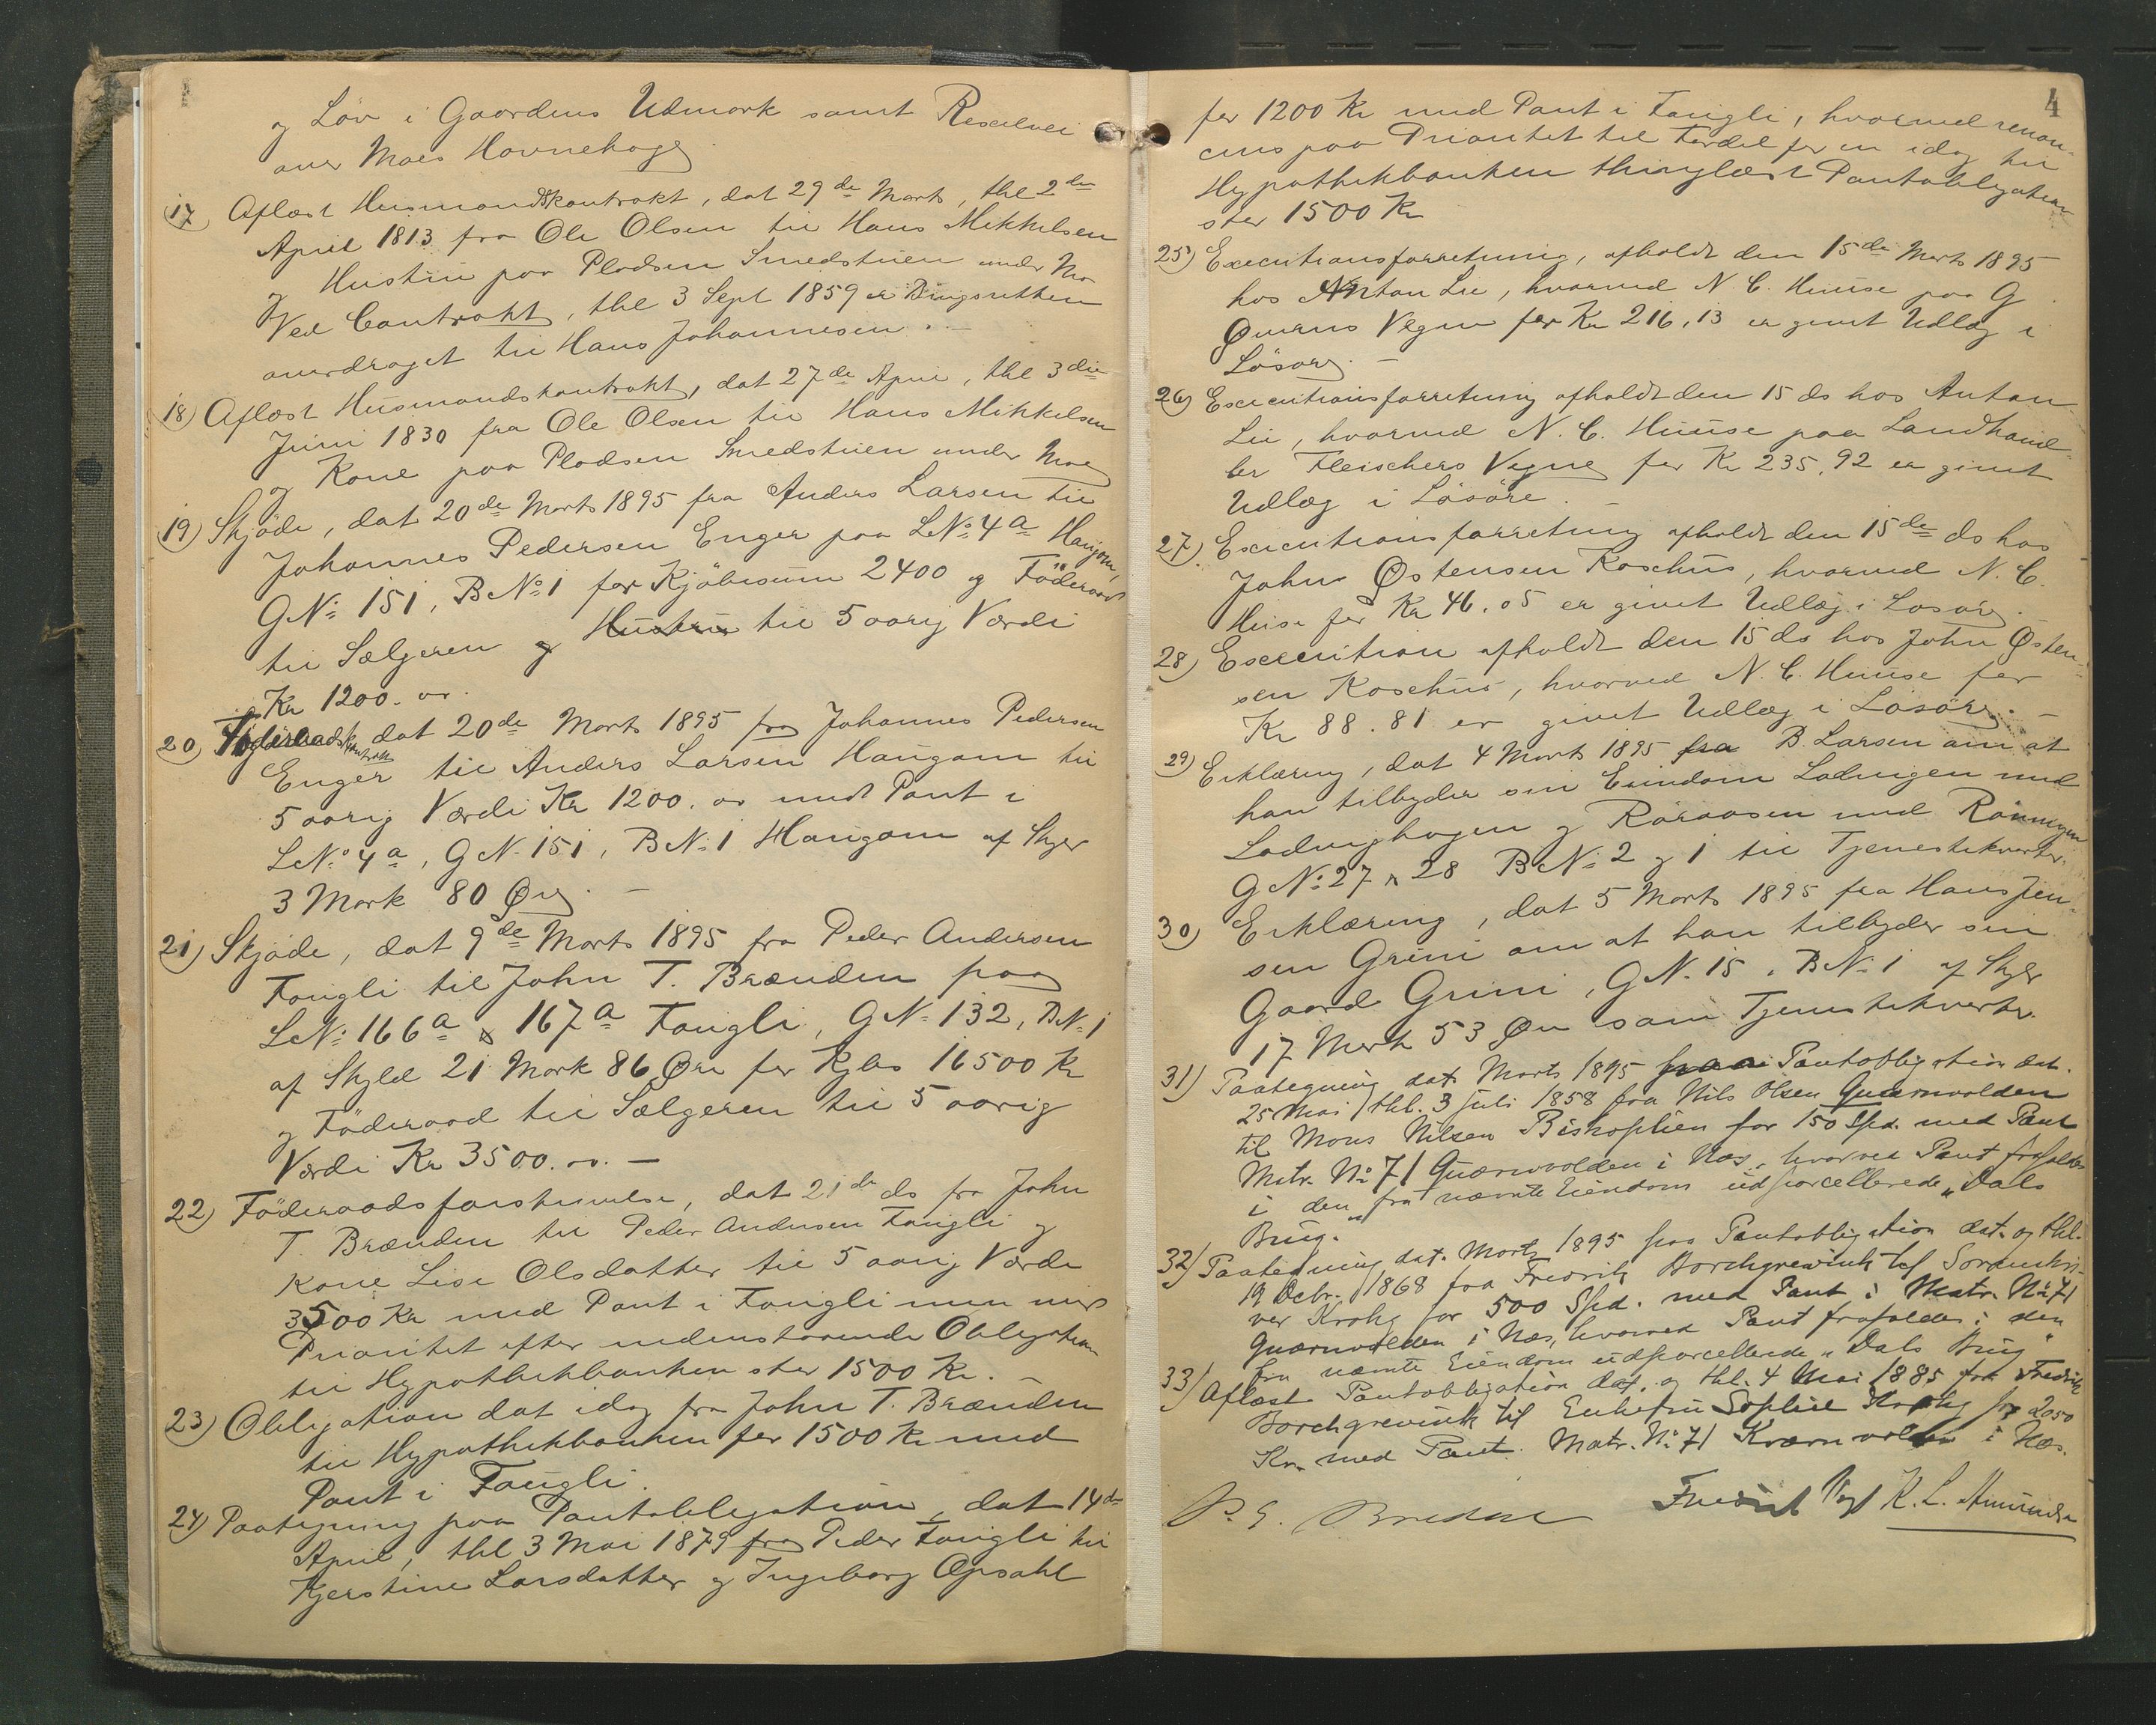 og Löv i Gaardens Udmark samt
over Moes Havnehage
17) Aflæst Husmandskontrakt, dat 29de Marts, thl 2den
April 1813 fra Ole Olsen til Hans Mikkelsen
og Hustru paa Pladsen Smedstuen under Mo
Ved Contrakt, thl 3 Sept 1859 er Bÿgselretten
overdraget til Hans Johannesen. –
18) Aflæst Husmandskontrakt, dat 27de April, thl 3die
Juni 1830 fra Ole Olsen til Hans Mikkelsen
og Kone paa Pladsen Smedstuen under Moe
19) Skjöde, dat 20de Marts 1895 fra Anders Larsen til
Johannes Pedersen Enger paa LNo: 4a Haugom,
GNo: 151, BNo: 1 for Kjöbesum 2400 og Föderaad
til Sælgeren og Hustru til 5 aarig Værdi
Kr 1200. oo.
20) Föderaadskontrakt dat 20de Marts 1895 fra Johannes Pedersen
Enger til Anders Larsen Haugom til
5 aarig Værdi Kr 1200. oo med Pant i
LNo: 4a, GN. 151, BN: 1 Haugom af Skyld
3 Mark 80 Øre. –
21) Skjöde, dat 9de Marts 1895 fra Peder Andersen
Fougli til John T. Brænden paa
LNo: 166a & 167a Fougli, GN: 132, BN: 1
af Skyld 21 Mark 86 Øre for Kjbs 16500 Kr
og Föderaad til Sælgeren til 5 aarig
Værdi Kr 3500. oo. –
22) Föderaadsforskrivelse, dat 21de ds fra John
T. Brænden til Peder Andersen Fougli og
Kone Lise Olsdatter til 5 aarig Værdi
3500 Kr med Pant i Fougli men med
Prioritet efter nedenstaaende Obligation
til Hypothekbanken stor 1500 Kr. –
23) Obligation dat idag fra John T. Brænden
til Hypothekbanken for 1500 Kr med
Pant i Fougli.
24) Paategning paa Pantobligation, dat 14de
April, thl 3 Mai 1879 fra Peder Fougli til
Kjerstine Larsdatter og Ingeborg Opsahl
4
for 1200 Kr med Pant i Fougli, hvorved renon-
ceres paa Prioritet til Fordel for en idag til
Hypothekbanken thinglæst Pantobligation
stor 1500 Kr
25) Executionsforretning, afholdt den 15de Marts 1895
hos Anton Lie, hvorved N. C. Huuse paa G
Ømerns Vegne for Kr 216,13 er givet Udlæg i
Lösöre. –
26) Executionsforretning afholdt den 15 ds hos Anton
Lie, hvorved N. C. Huuse paa Landhand-
ler Fleischers Vegne for Kr 235,92 er givet
Udlæg i Lösöre. –
27) Executionsforretning afholdt den 15de ds hos
John Østensen Koschus, hvorved N. C.
Huse for Kr 46.05 er givet Udlæg i Lösöre.
28) Execution afholdt den 15 ds hos John Østen-
sen Koschus, hvorved N. C. Huuse for
Kr 88.81 er givet Udlæg i Lösöre. –
29) Erklæring, dat 4 Marts 1895 fra B. Larsen om at
han tilbyder sin Eiendom Lodvigen med
Lodvighagen og Röraasen med Rönningen
GNo: 27 & 28 BNo: 2 og 1 til Tjenestekvarter.
30) Erklæring, dat 5 Marts 1895 fra Hans Jen-
sen Grini om at han tilbyder sin
Gaard Grini, GN. 15, BN: 1 af Skyld
17 Mark 53 Øre som Tjenestekvarter.
31) Paategning dat. Marts 1895 paa Pantobligation dat.
25 Mai, thl. 3 juli 1858 fra Nils Olsen Quærnvolden
til Mons Nilsen Biskoplien for 150 Spd. med Pant
Matr. No: 71 Quærnvolden i Næs, hvorved Pant frafaldes
i den fra nævnte Eiendom udparcellerede "Dals
Brug".
32) Paategning dat. Marts 1895 paa Pantobligation dat. og thl.
19 Octbr. 1868 fra Fredrik Borchgrevink til Sorenskri-
ver Krohg for 500 Spd. med Pant i Matr. No: 71
Quærnvolden i Næs, hvorved Pant frafaldes i den
fra nævnte Eiendom udparcellerede "Dals Brug"
33) Aflæst Pantobligation dat. og thl. 4 Mai 1885 fra Fredrik
Borchgrevink til Enkefru Sophie Krohg for 2050
Kr. med Pant. Matr. No: 71 Kværnvolden i Næs.